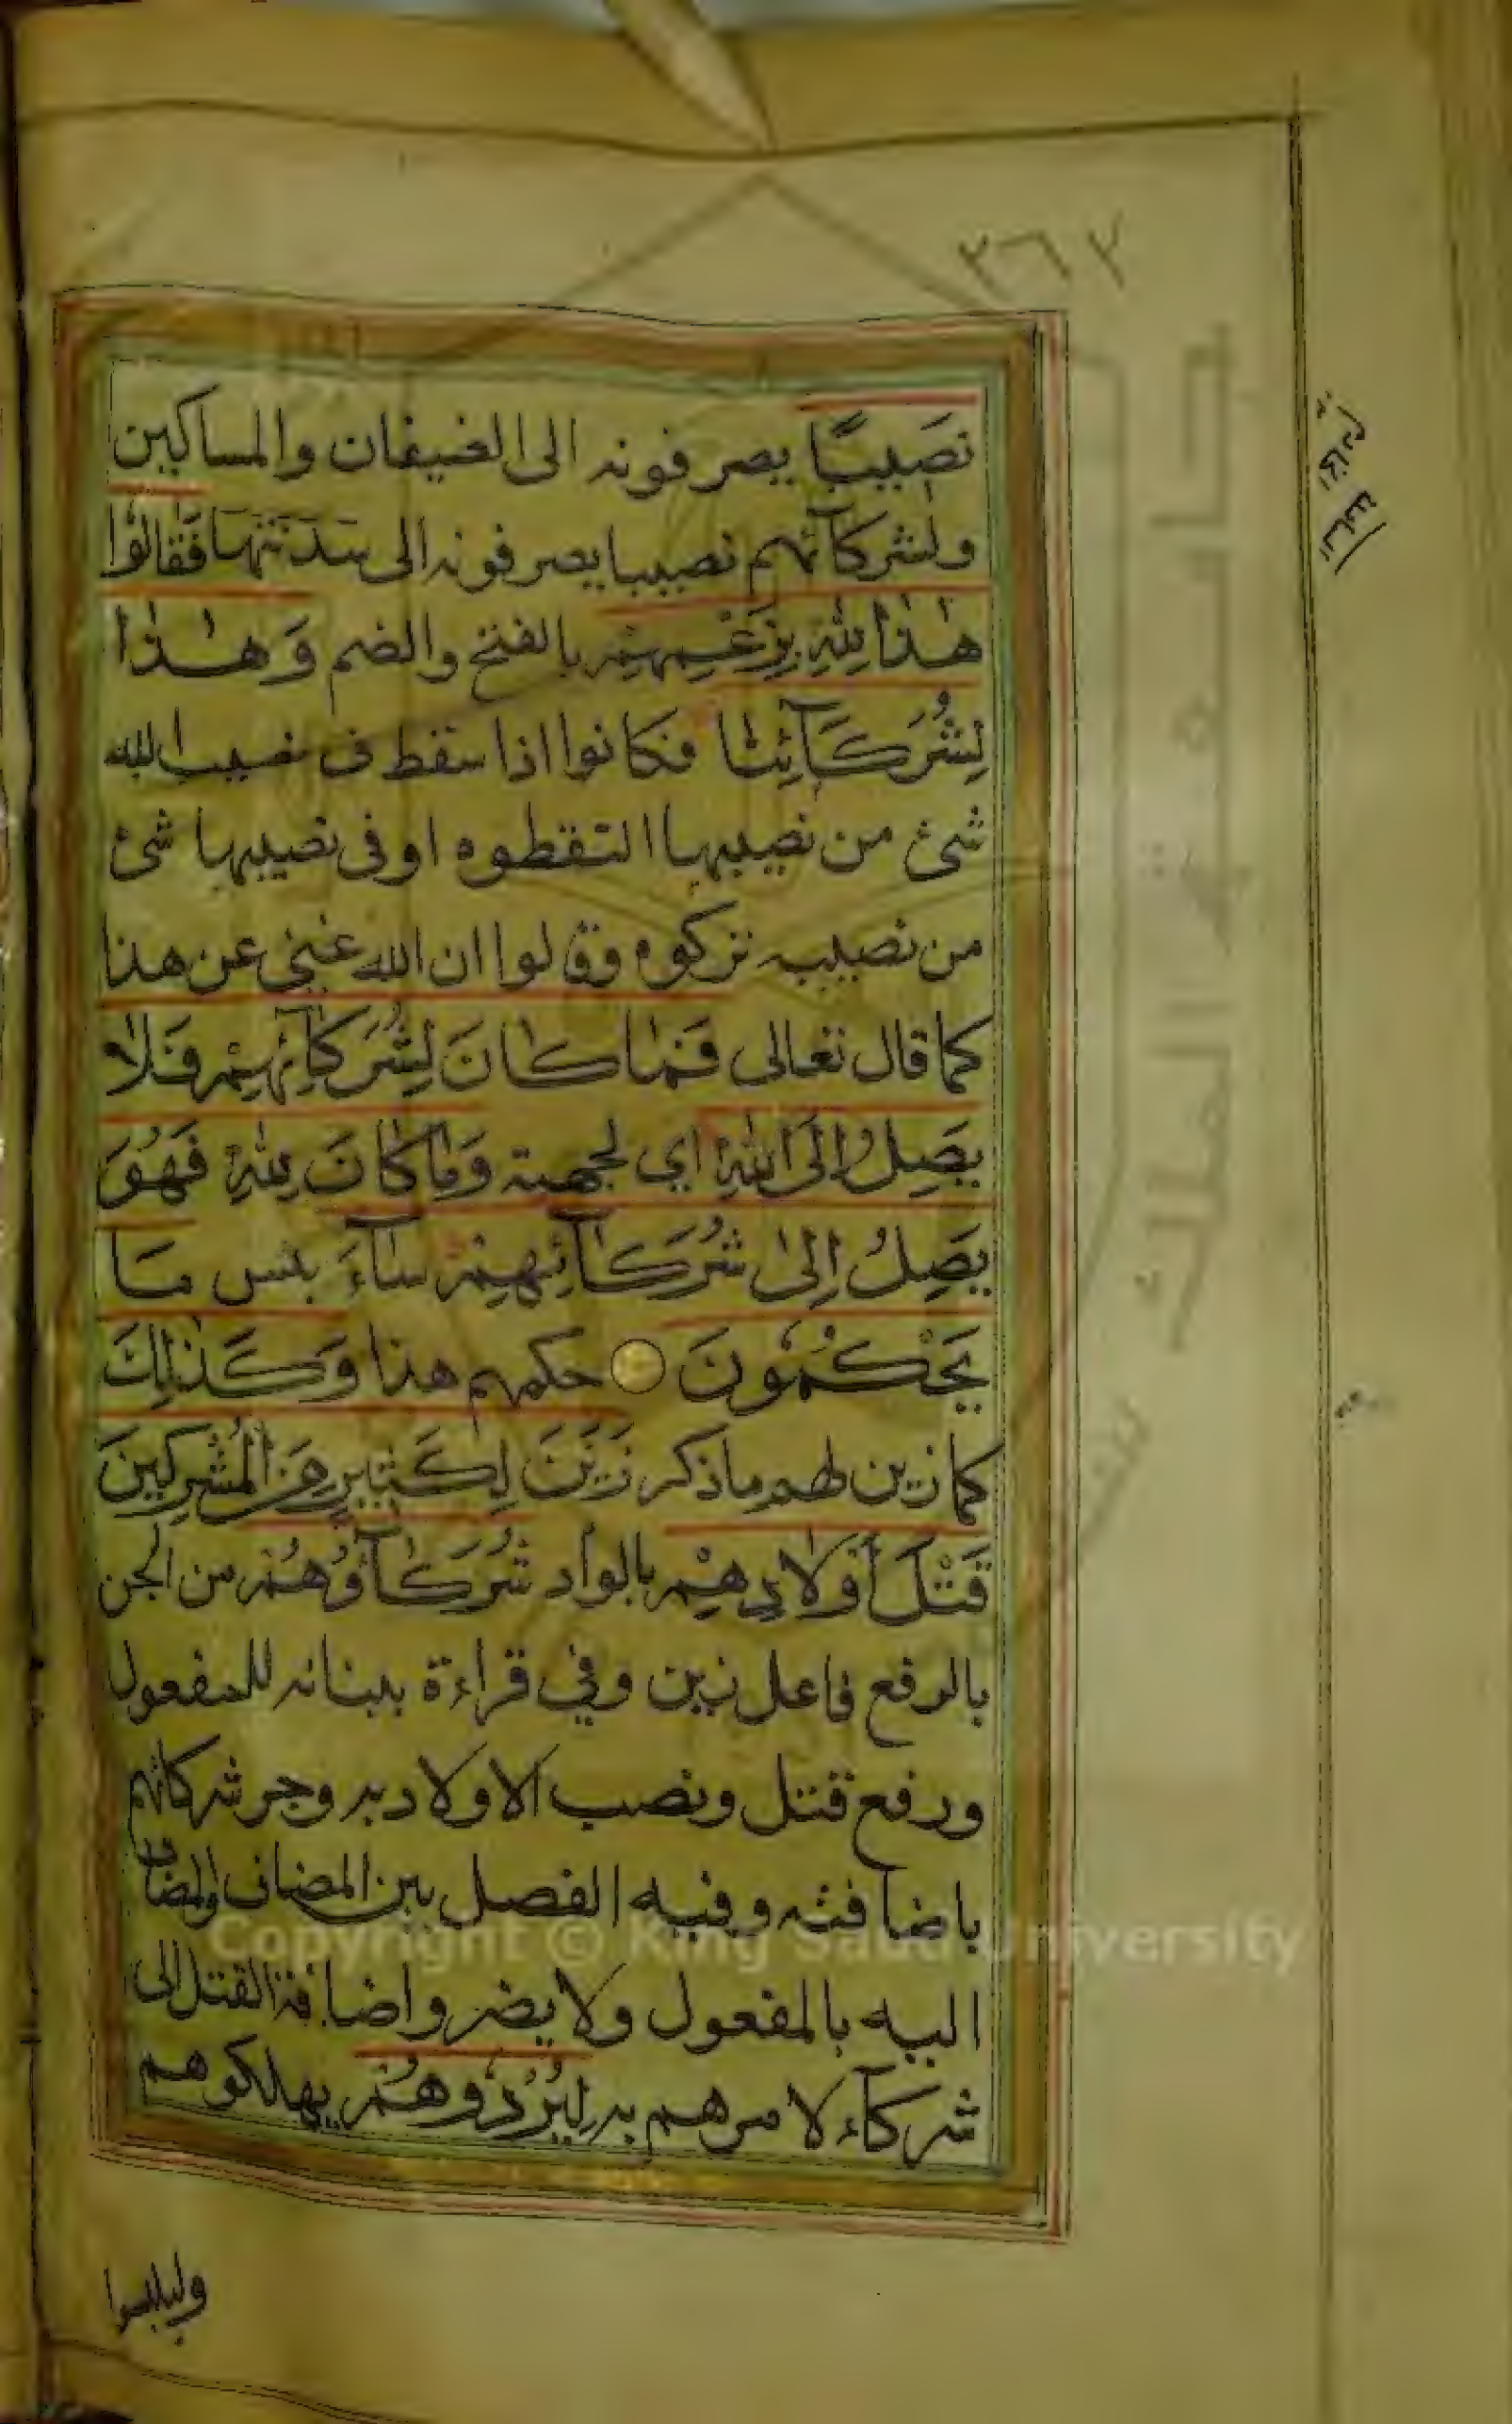 ٣٦٢
نَصِيبًا يصرفونه الى الضيفان والمساكين
ولشركآئهم نصيبا يصرفونه الى سَدَنَتِهَا فَقَالُوْا
هٰذَا لِلّٰهِ بِزَعْمِهِمْ بالفتح والضم وَهٰذَا
لِشُرَكَآئِنَا فكانوا اذا سقط في نصيب الله
شئ من نصيبها التقطوه او في نصيبها شئ
من نصيبه تركوه وقالوا ان الله غني عن هذا
كما قال تعالى فَمَا كَانَ لِشُرَكَآئِهِمْ فَلَا
يَصِلُ اِلَى اللّٰهِ اي لجهته وَمَا كَانَ لِلّٰهِ فَهُوَ
يَصِلُ اِلٰى شُرَكَآئِهِمْ سَآءَ بئس مَا
يَحْكُمُونَ حكمهم هذا وَكَذٰلِكَ
كما زين لهم ما ذكر زَيَّنَ لِكَثِيرٍ مِنَ الْمُشْرِكِينَ
قَتْلَ أَوْلَادِهِمْ بالوأد شُرَكَآؤُهُمْ من الجن
بالرفع فاعل زين وفي قراءة ببنائه للمفعول
ورفع قتل ونصب الاولاد به وجر شركائهم
باضافته وفيه الفصل بين المضاف والمضاف
اليه بالمفعول ولا يضر واضافة القتل الى
شركآء لامرهم به لِيُرْدُوهُمْ يهلكوهم
وليلبسوا
Copyright © King Saud University